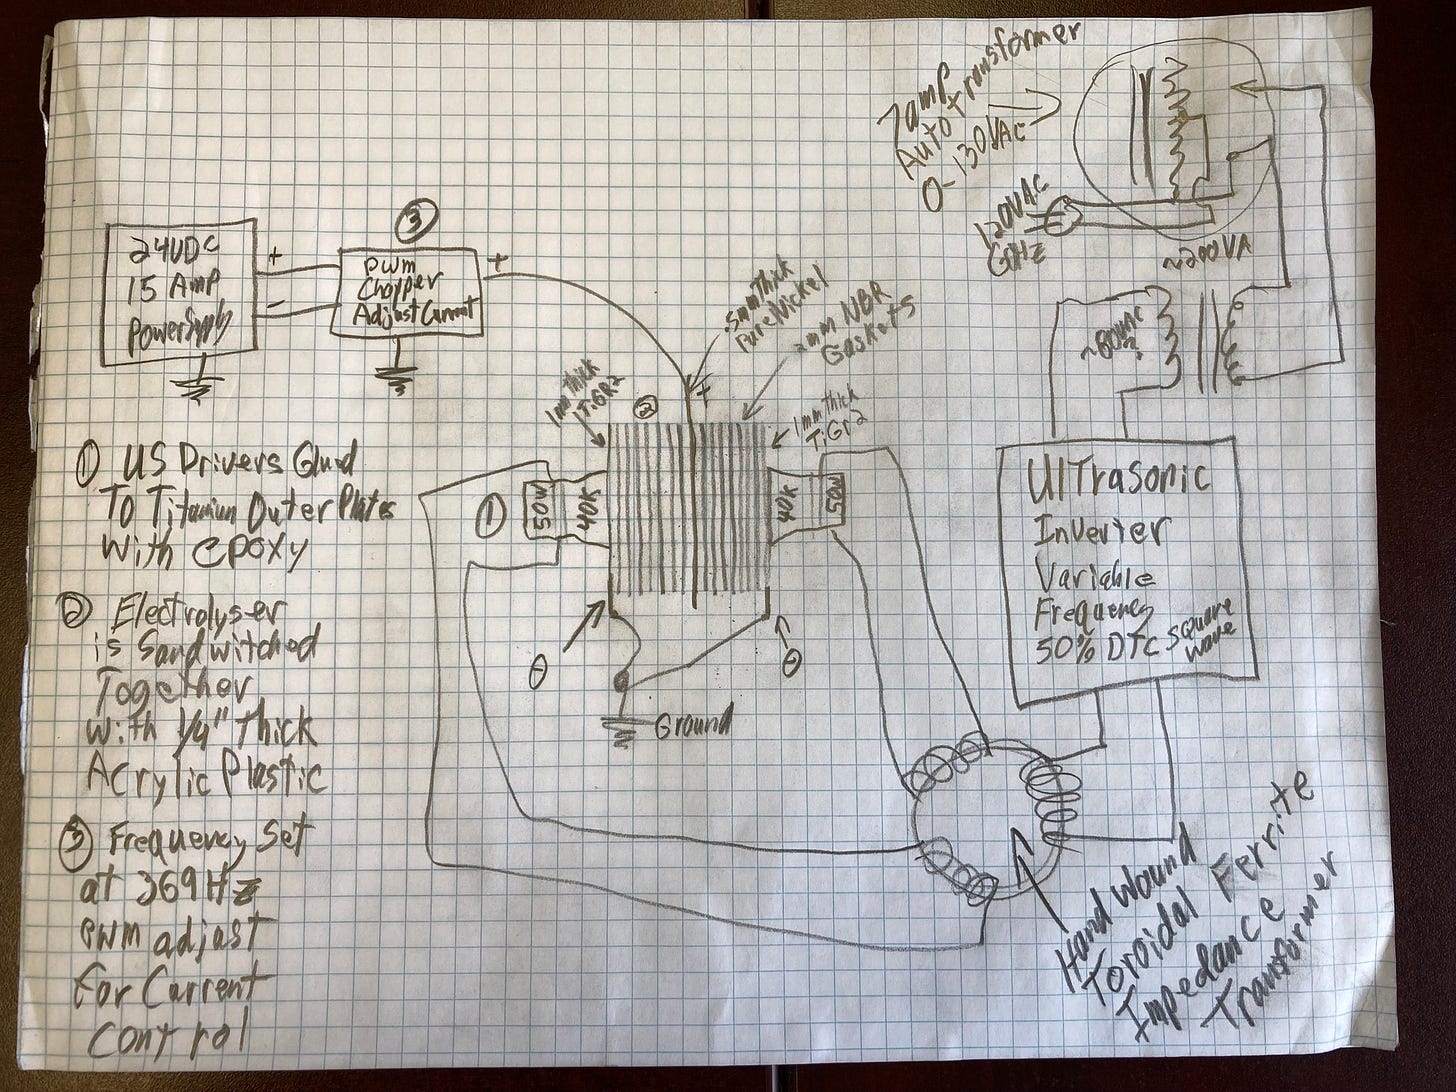 7 amp
Auto transformer
0-130VAC
120VAC
60HZ
~200VA
~80VAC
?
24VDC
15 Amp
Power Supply
+
-
3
PWM
Chopper
Adjust Current
+
.5mm Thick
Pure Nickel
2mm NBR
Gaskets
1mm Thick
TiGR2
2
+
1mm Thick
TiGr2
1
50W
40K
40K
50W
-
-
Ground
Ultrasonic
Inverter
Variable
Frequency
50% DTC Square
Wave
Hand Wound
Toroidal Ferrite
Impedance
Transformer
1 US Drivers Glued
To Titanium Outer Plates
With epoxy
2 Electrolyser
is Sandwitched
Together
with 1/4" Thick
Acrylic Plastic
3 Frequency Set
at 369Hz
PWM adjast
For Current
Control